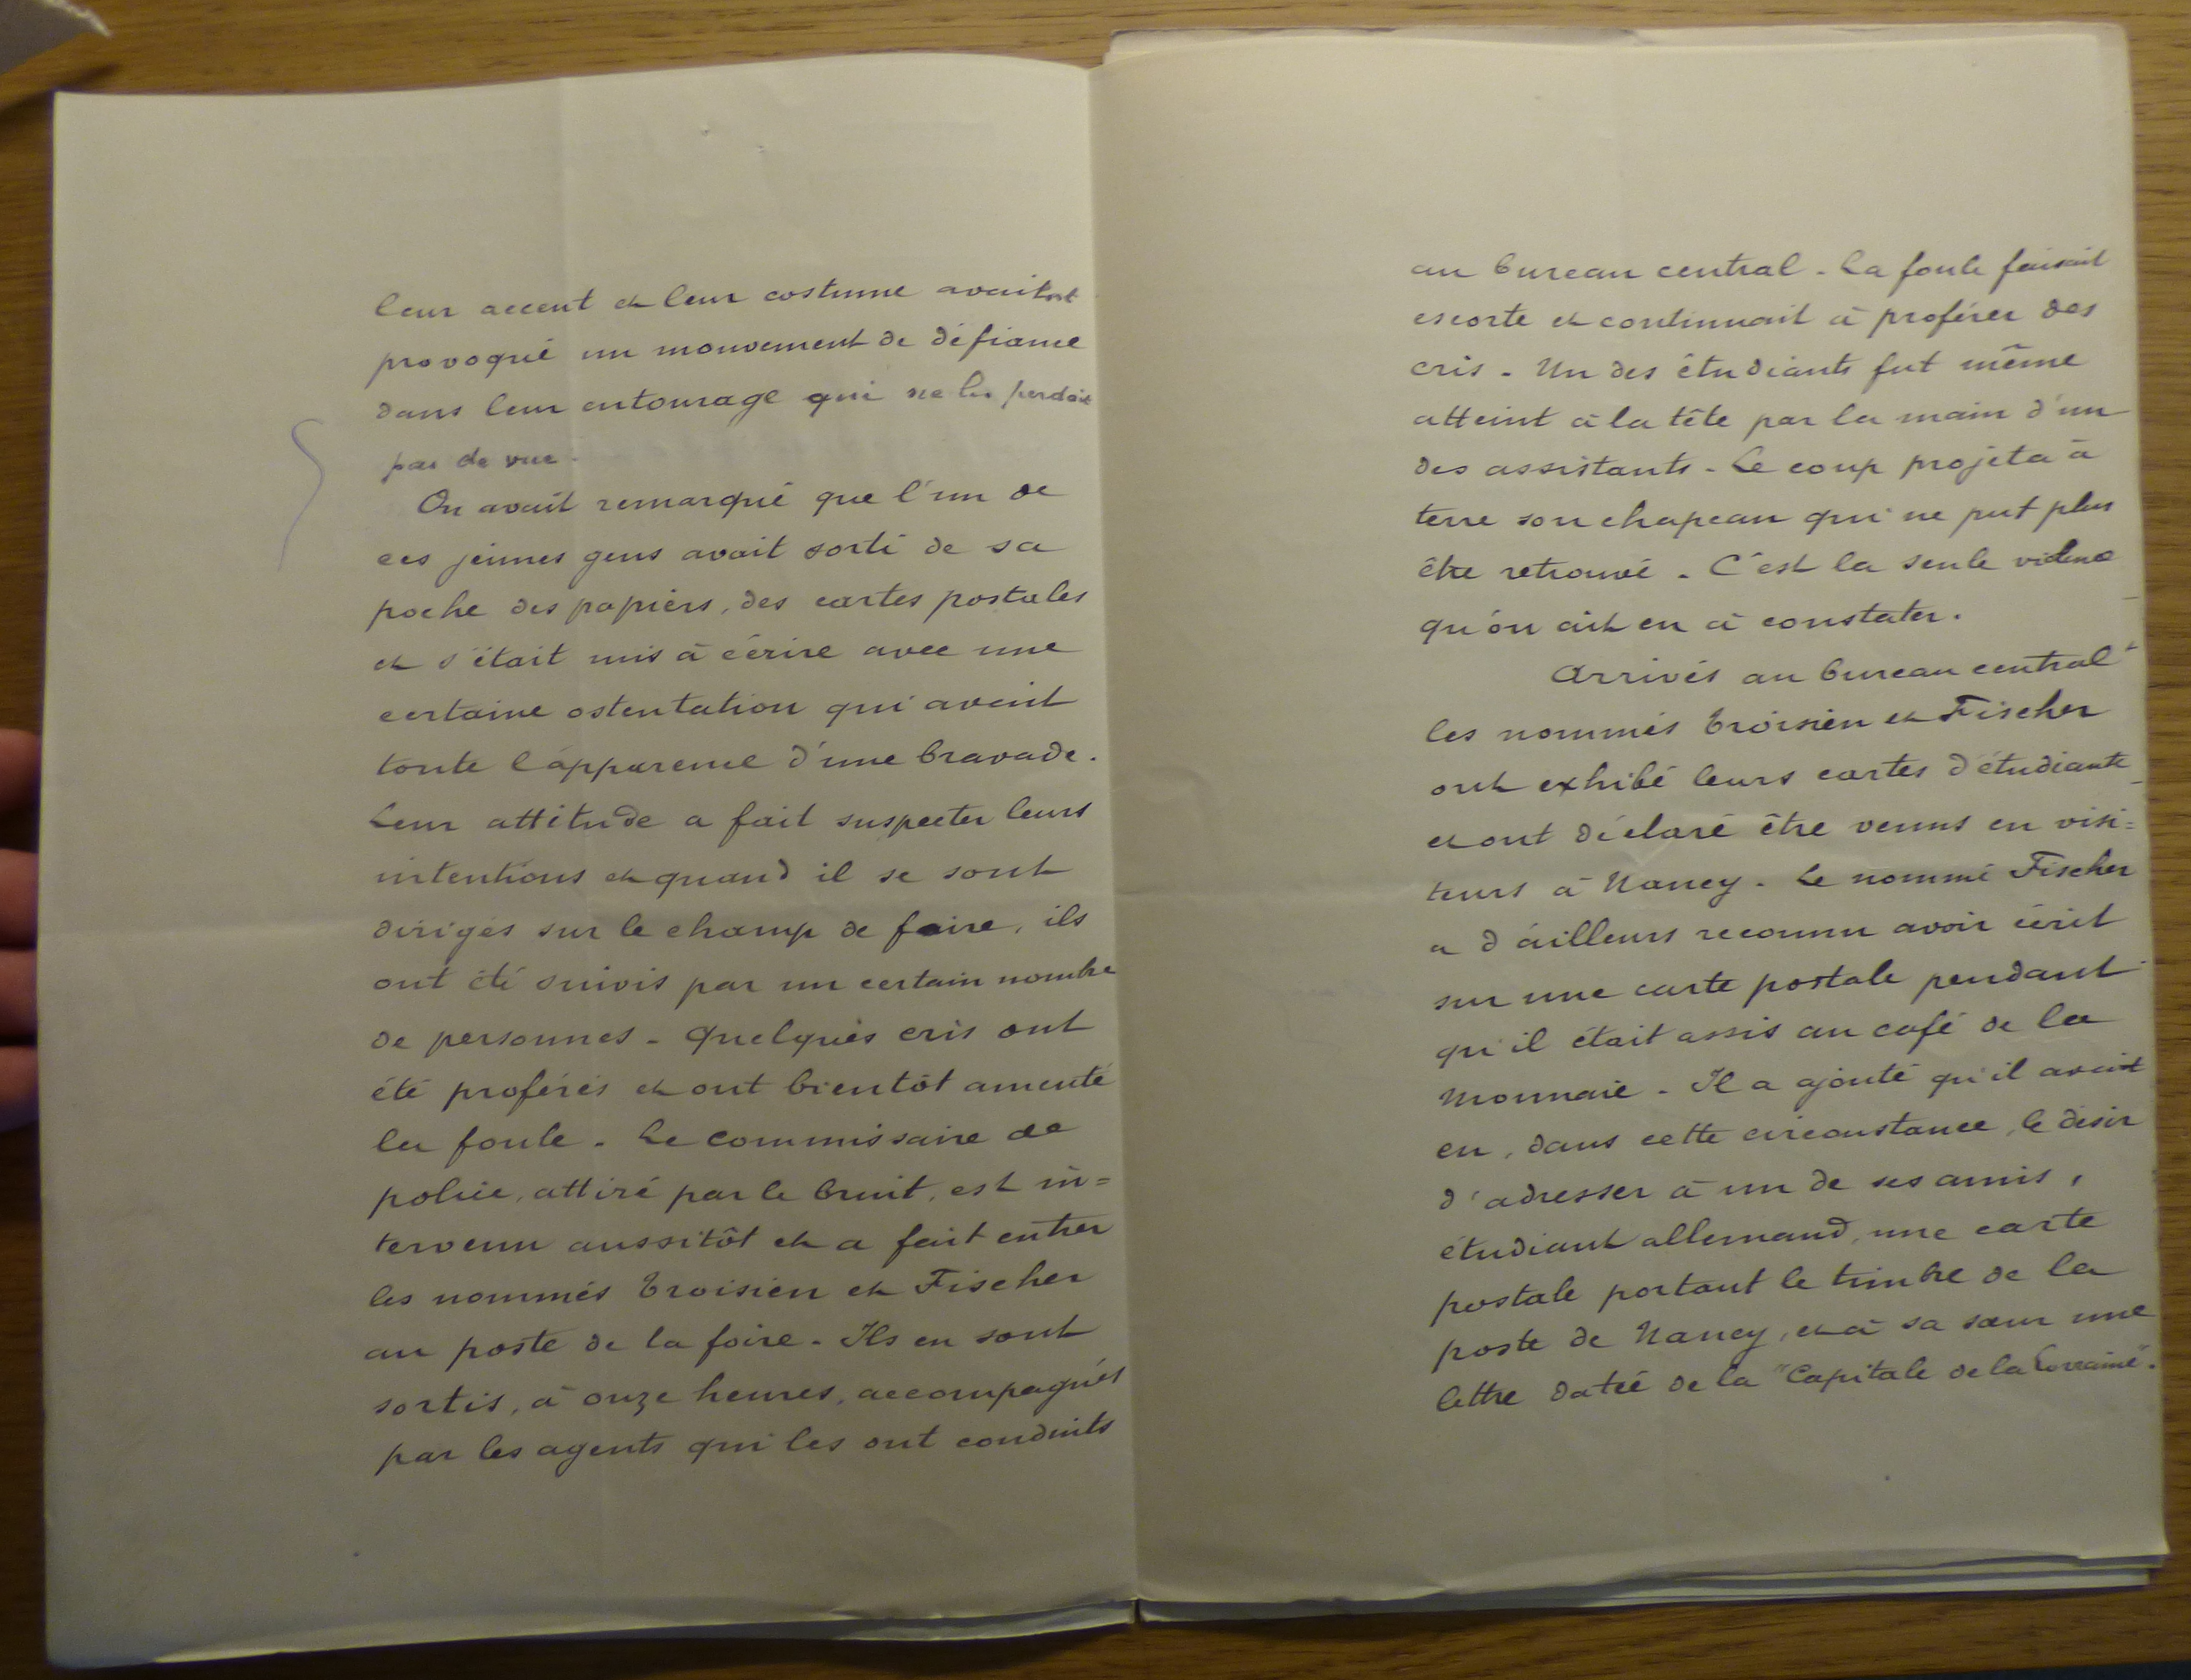 leur accent et leur costume avaient
provoqué un mouvement de défiance
dans leur entourage qui ne les perdait
pas de vue.
On avait remarqué que l'un de
ces jeunes gens avait sorti de sa
poche des papiers, des cartes postales
et s'était mis à écrire avec une
certaine ostentation qui avait
toute l'apparence d'une bravade.
Leur attitude a fait suspecter leurs
intentions et quand il se sont
dirigés sur le champ de foire, ils
ont été suivis par un certain nombre
de personnes - Quelques cris ont
été proférés et ont bientôt ameuté
la foule - Le commissaire de
police, attiré par le bruit, est in=
tervenu aussitôt et a fait entrer
les nommés Troisien et Fischer
au poste de la foire - Ils en sont
sortis, à onze heures, accompagnés
par les agents qui les ont conduits
au bureau central - La foule faisait
escorte et continuait à proférer des
cris - Un des étudiants fut même
atteint à la tête par la main d'un
des assistants - Le coup projeta à
terre son chapeau qui ne put plus
être retrouvé - C'est la seule violence
qu'on ait eu à constater.
Arrivés au bureau central
les nommés Troisien et Fischer
ont exhibé leurs cartes d'étudiants
et ont déclaré être venus en visi=
teurs à Nancy - Le nommé Fischer
a d'ailleurs reconnu avoir écrit
sur une carte postale pendant
qu'il était assis au café de la
Monnaie - Il a ajouté qu'il avait
eu, dans cette circonstance, le désir
d'adresser à un de ses amis,
étudiant allemand, une carte
postale portant le timbre de la
poste de Nancy, et à sa sœur une
lettre datée de la "Capitale de la Lorraine".